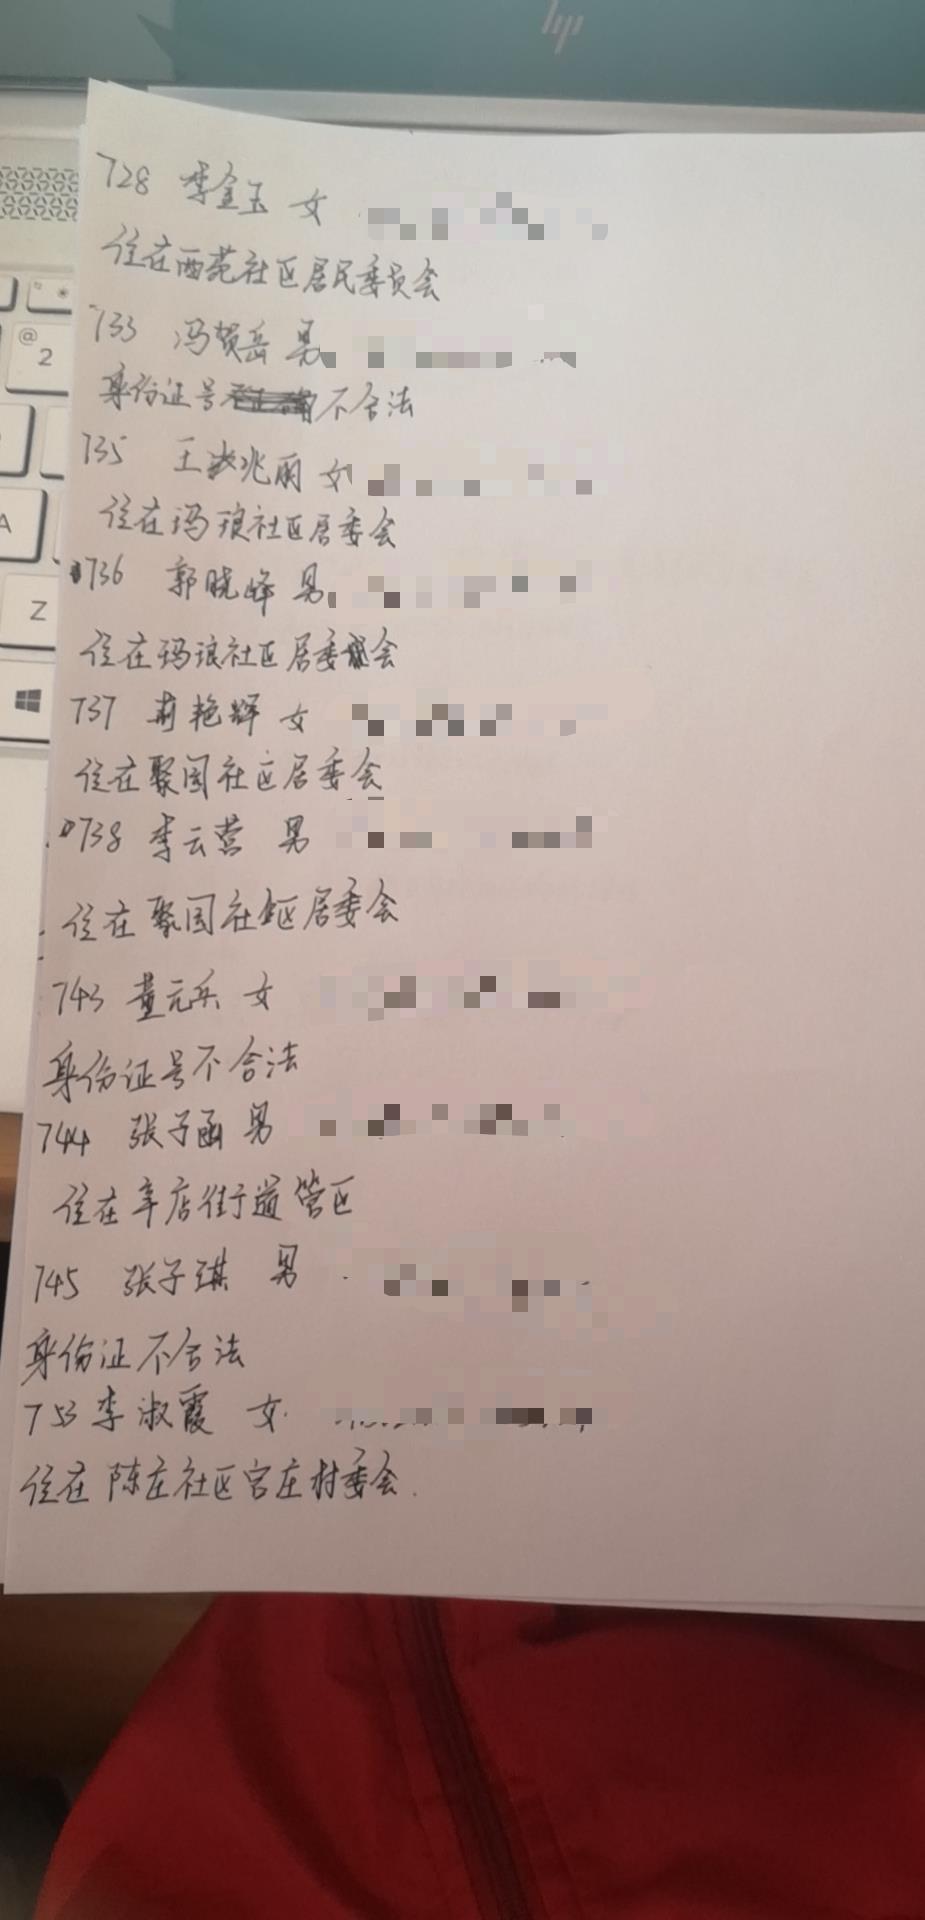 hp
728 李金玉 女
住在西苑社区居民委员会
733 冯贺岳 男
身份证号不合法
735 王兆丽 女
住在玛琅社区居委会
736 郭晓峰 男
住在玛琅社区居委会
737 荊艳辉 女
住在聚园社区居委会
738 李云营 男
住在聚园社区居委会
743 董元兵 女
身份证号不合法
744 张子函 男
住在辛店街道管区
745 张子琪 男
身份证不合法
753 李淑霞 女
住在陈庄社区宫庄村委会.
@
2
*
A
Z